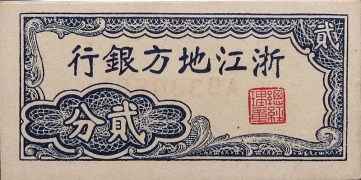 貳
浙江地方銀行
貳分